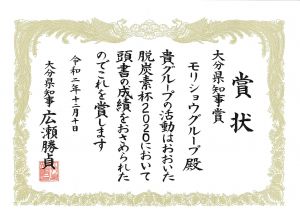 賞状
大分県知事賞
モリショウグループ殿
貴グループの活動はおおいた
脱炭素杯2020において
頭書の成績をおさめられた
のでこれを賞します
令和二年十二月十日
大分県知事 広瀬勝貞